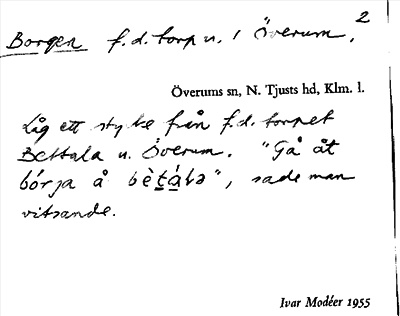 Borgen f.d. torp u. i Överum. 2
Överums sn, N. Tjusts hd, Klm. l.
Låg ett stycke från f.d. torpet
Bettala u. Överum. "Gå åt
bórja å bètála", sade man
vitsande.
Ivar Modéer 1955